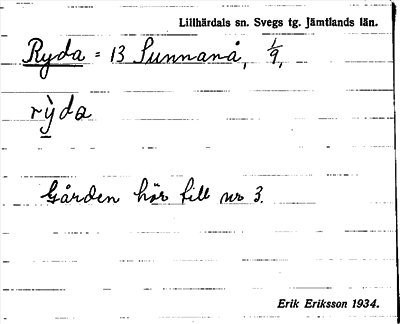 Lillhärdals sn. Svegs tg. Jämtlands län.
Ryda = 13 Sunnanå, 1/9,
rỳda
Gården hör till nr 3.
Erik Eriksson 1934.